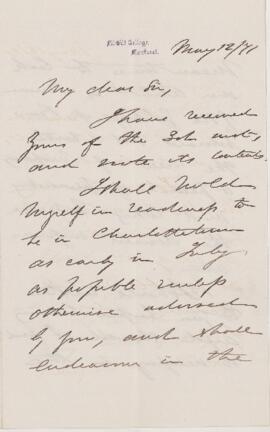 McGill College,
Montreal.
May 12/71
My dear Sir,
I have received
yours of the 3d inst,
and note its contents.
I shall hold
myself in readiness to
be in Charlottetown
as early in July
as possible unless
otherwise advised
by you, and shall
endeavour in the